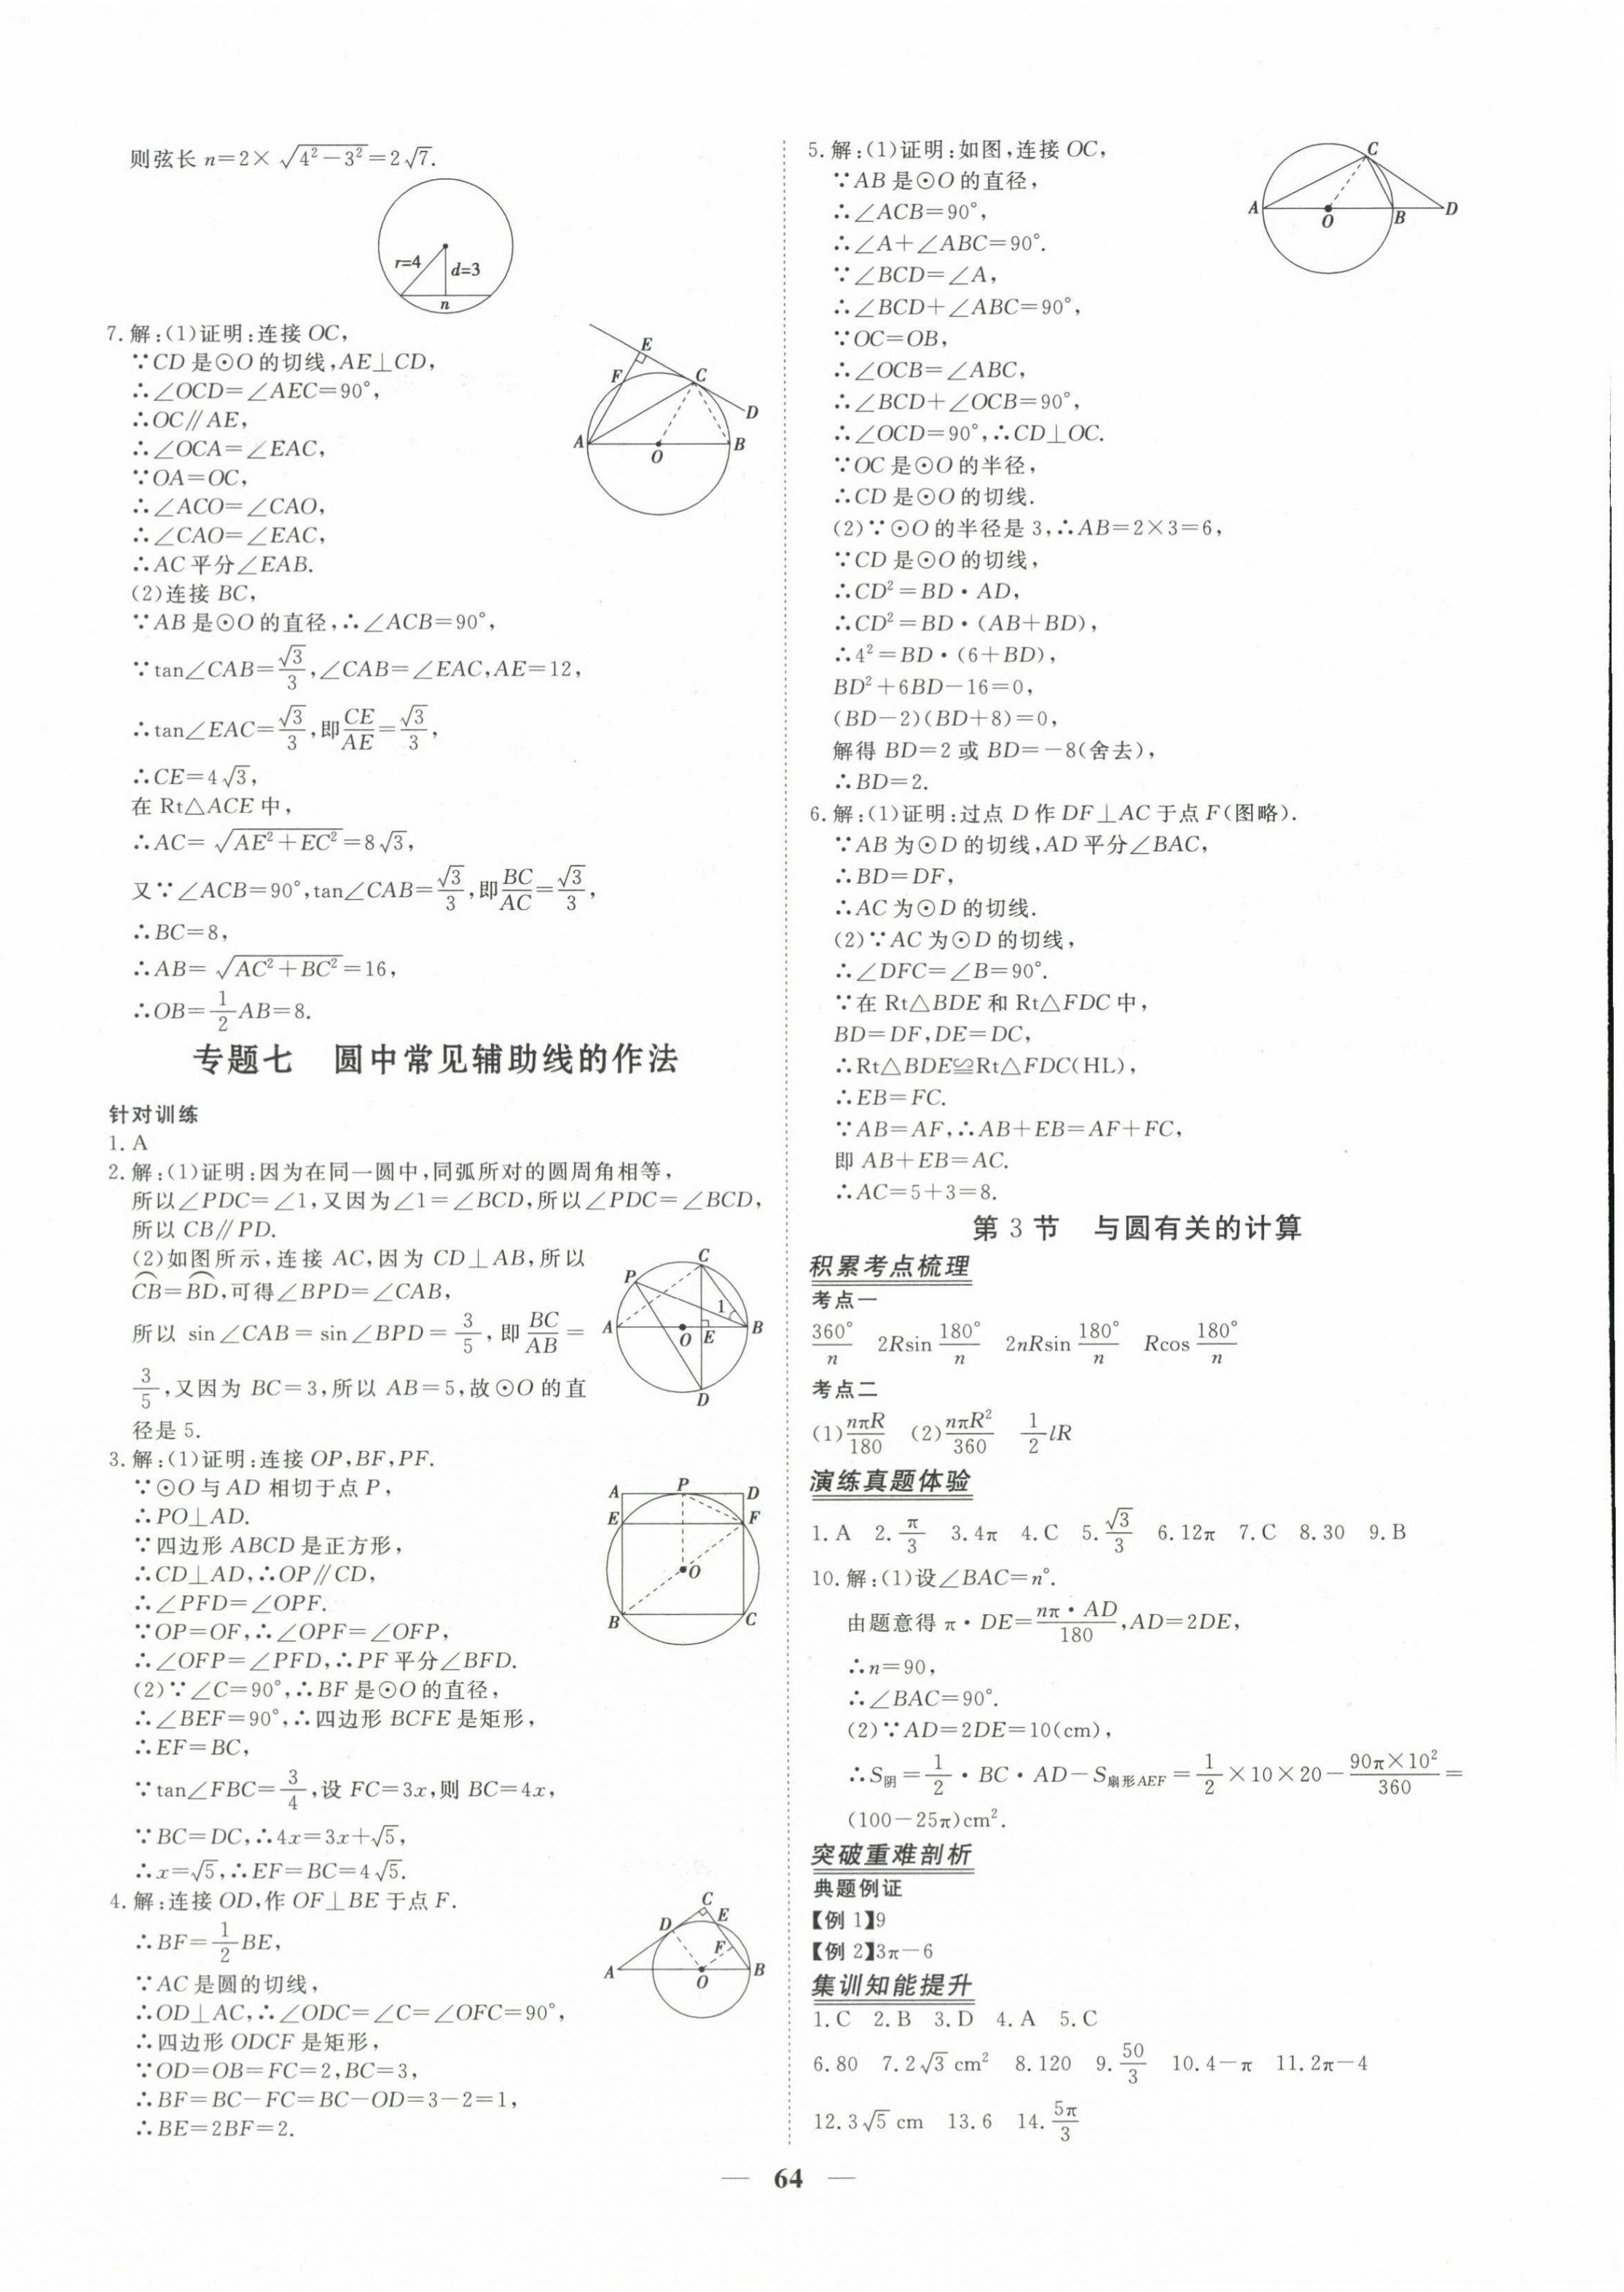 则弦长 n=2×√(4²−3²)=2√7.
r=4
d=3
n
7.解:(1)证明:连接 OC,
∵CD 是⊙O 的切线,AE⊥CD,
∴∠OCD=∠AEC=90°,
∴OC∥AE,
∴∠OCA=∠EAC,
∵OA=OC,
∴∠ACO=∠CAO,
∴∠CAO=∠EAC,
∴AC 平分∠EAB.
E
F
C
D
A
O
B
(2)连接 BC,
∵AB 是⊙O 的直径,∴∠ACB=90°,
∵tan∠CAB=√3/3,∠CAB=∠EAC,AE=12,
∴tan∠EAC=√3/3,即CE/AE=√3/3,
∴CE=4√3,
在 Rt△ACE 中,
∴AC=√(AE²+EC²)=8√3,
又∵∠ACB=90°,tan∠CAB=√3/3,即BC/AC=√3/3,
∴BC=8,
∴AB=√(AC²+BC²)=16,
∴OB=1/2AB=8.
专题七 圆中常见辅助线的作法
针对训练
1. A
2.解:(1)证明:因为在同一圆中,同弧所对的圆周角相等,
所以∠PDC=∠1,又因为∠1=∠BCD,所以∠PDC=∠BCD,
所以 CB∥PD.
(2)如图所示,连接 AC,因为 CD⊥AB,所以
⌒CB=⌒BD,可得∠BPD=∠CAB,
所以 sin∠CAB=sin∠BPD=3/5,即BC/AB=
3/5,又因为 BC=3,所以 AB=5,故⊙O 的直
径是 5.
C
P
1
A
O
E
B
D
3.解:(1)证明:连接 OP,BF,PF.
∵⊙O 与 AD 相切于点 P,
∴PO⊥AD.
∵四边形 ABCD 是正方形,
∴CD⊥AD,∴OP∥CD,
∴∠PFD=∠OPF.
∵OP=OF,∴∠OPF=∠OFP,
∴∠OFP=∠PFD,∴PF 平分∠BFD.
(2)∵∠C=90°,∴BF 是⊙O 的直径,
∴∠BEF=90°,∴四边形 BCFE 是矩形,
∴EF=BC,
∵tan∠FBC=3/4,设 FC=3x,则 BC=4x,
∵BC=DC,∴4x=3x+√5,
∴x=√5,∴EF=BC=4√5.
A
P
D
E
F
O
B
C
4.解:连接 OD,作 OF⊥BE 于点 F.
∴BF=1/2BE,
∵AC 是圆的切线,
∴OD⊥AC,∴∠ODC=∠C=∠OFC=90°,
∴四边形 ODCF 是矩形,
∵OD=OB=FC=2,BC=3,
∴BF=BC−FC=BC−OD=3−2=1,
∴BE=2BF=2.
C
D
E
F
A
O
B
5.解:(1)证明:如图,连接 OC,
∵AB 是⊙O 的直径,
∴∠ACB=90°,
∴∠A+∠ABC=90°.
∵∠BCD=∠A,
∴∠BCD+∠ABC=90°,
∵OC=OB,
∴∠OCB=∠ABC,
∴∠BCD+∠OCB=90°,
∴∠OCD=90°,∴CD⊥OC.
∵OC 是⊙O 的半径,
∴CD 是⊙O 的切线.
C
A
O
B
D
(2)∵⊙O 的半径是 3,∴AB=2×3=6,
∵CD 是⊙O 的切线,
∴CD²=BD·AD,
∴CD²=BD·(AB+BD),
∴4²=BD·(6+BD),
BD²+6BD−16=0,
(BD−2)(BD+8)=0,
解得 BD=2 或 BD=−8(舍去),
∴BD=2.
6.解:(1)证明:过点 D 作 DF⊥AC 于点 F(图略).
∵AB 为⊙D 的切线,AD 平分∠BAC,
∴BD=DF,
∴AC 为⊙D 的切线.
(2)∵AC 为⊙D 的切线,
∴∠DFC=∠B=90°.
∵在 Rt△BDE 和 Rt△FDC 中,
BD=DF,DE=DC,
∴Rt△BDE≌Rt△FDC(HL),
∴EB=FC.
∵AB=AF,∴AB+EB=AF+FC,
即 AB+EB=AC.
∴AC=5+3=8.
第 3 节 与圆有关的计算
积累考点梳理
考点一
360°/n 2Rsin 180°/n 2nRsin 180°/n Rcos 180°/n
考点二
(1)nπR/180 (2)nπR²/360 1/2lR
演练真题体验
1. A 2. π/3 3. 4π 4. C 5. √3/3 6. 12π 7. C 8. 30 9. B
10.解:(1)设∠BAC=n°.
由题意得 π·DE=nπ·AD/180,AD=2DE,
∴n=90,
∴∠BAC=90°.
(2)∵AD=2DE=10(cm),
∴S阴=1/2·BC·AD−S扇形AEF=1/2×10×20−90π×10²/360=
(100−25π)cm².
突破重难剖析
典题例证
【例 1】9
【例 2】3π−6
集训知能提升
1. C 2. B 3. D 4. A 5. C
6. 80 7. 2√3 cm² 8. 120 9. 50/3 10. 4−π 11. 2π−4
12. 3√5 cm 13. 6 14. 5π/3
— 64 —